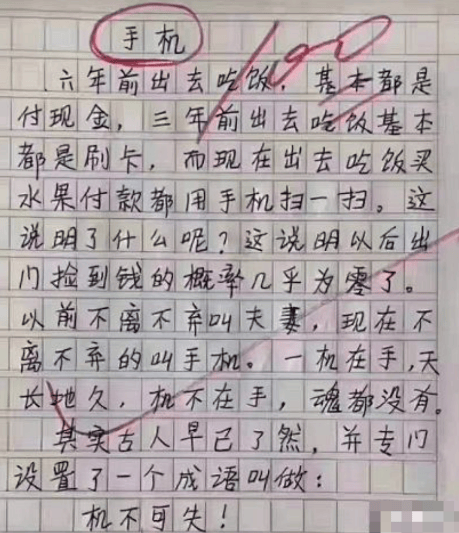 手机
100
六年前出去吃饭，基本都是
付现金，三年前出去吃饭基本
都是刷卡，而现在出去吃饭买
水果付款都用手机扫一扫。这
说明了什么呢？这说明以后出
门捡到钱的概率几乎为零了。
以前不离不弃叫夫妻，现在不
离不弃的叫手机。一机在手，天
长地久，机不在手，魂都没有。
其实古人早已了然，并专门
设置了一个成语叫做：
机不可失！